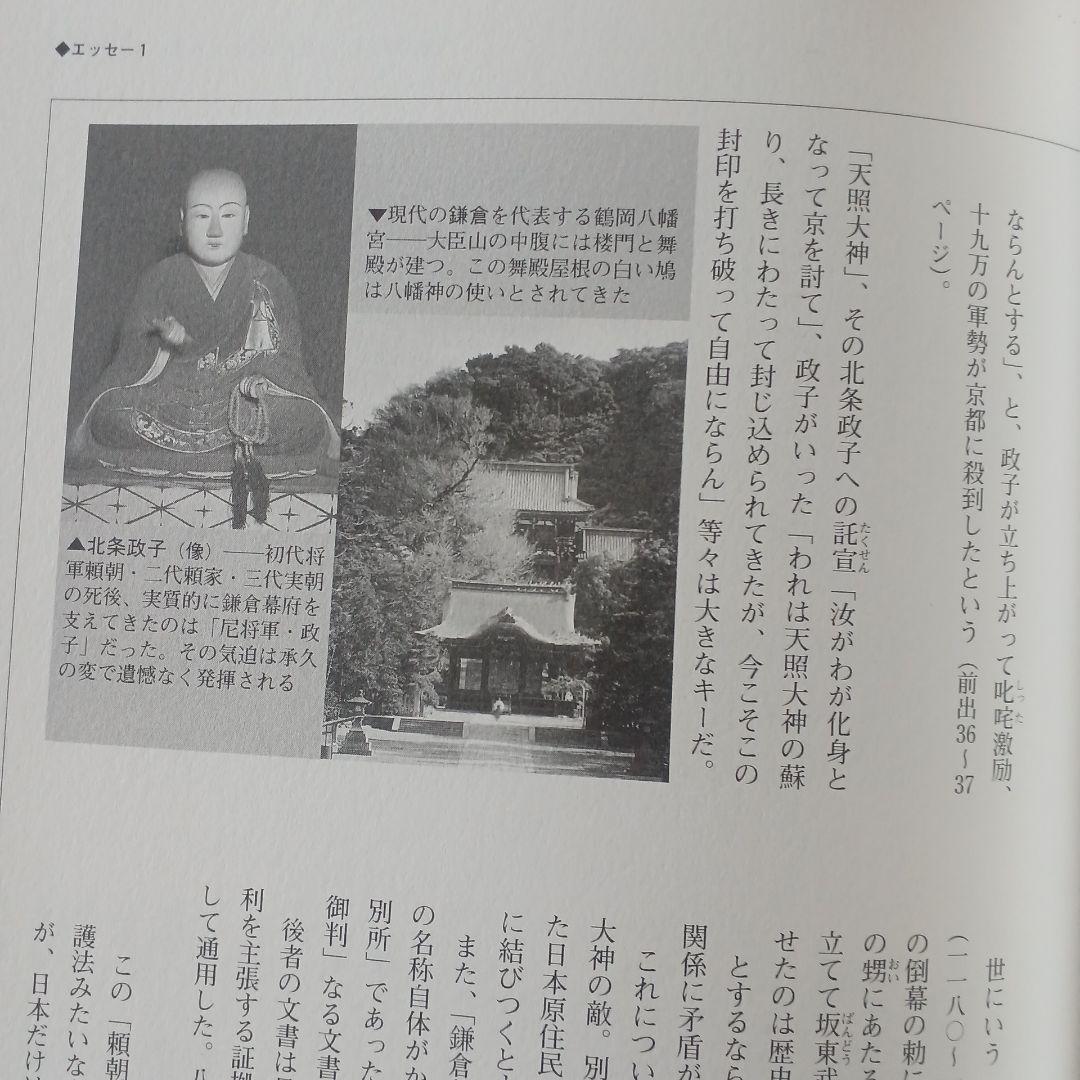 ◆エッセー1
ならんとする」、と、政子が立ち上がって叱咤激励、
しった
十九万の軍勢が京都に殺到したという（前出36〜37
ページ）。
「天照大神」、その北条政子への託宣「汝がわが化身と
たくせん
なって京を討て」、政子がいった「われは天照大神の蘇
り、長きにわたって封じ込められてきたが、今こそこの
封印を打ち破って自由にならん」等々は大きなキーだ。
▼現代の鎌倉を代表する鶴岡八幡
宮――大臣山の中腹には楼門と舞
殿が建つ。この舞殿屋根の白い鳩
は八幡神の使いとされてきた
▲北条政子（像）――初代将
軍頼朝・二代頼家・三代実朝
の死後、実質的に鎌倉幕府を
支えてきたのは「尼将軍・政
子」だった。その気迫は承久
の変で遺憾なく発揮される
世にいう
（一一八〇〜
の倒幕の勅に
の甥にあたる
おい
立てて坂東武
ばんどう
せたのは歴史
とするなら
関係に矛盾が
これについ
大神の敵。別
た日本原住民
に結びつくと
また、「鎌倉
の名称自体がか
別所」であった
御判」なる文書
後者の文書は
利を主張する証拠
して通用した。
この「頼朝
護法みたいな
が、日本だけ